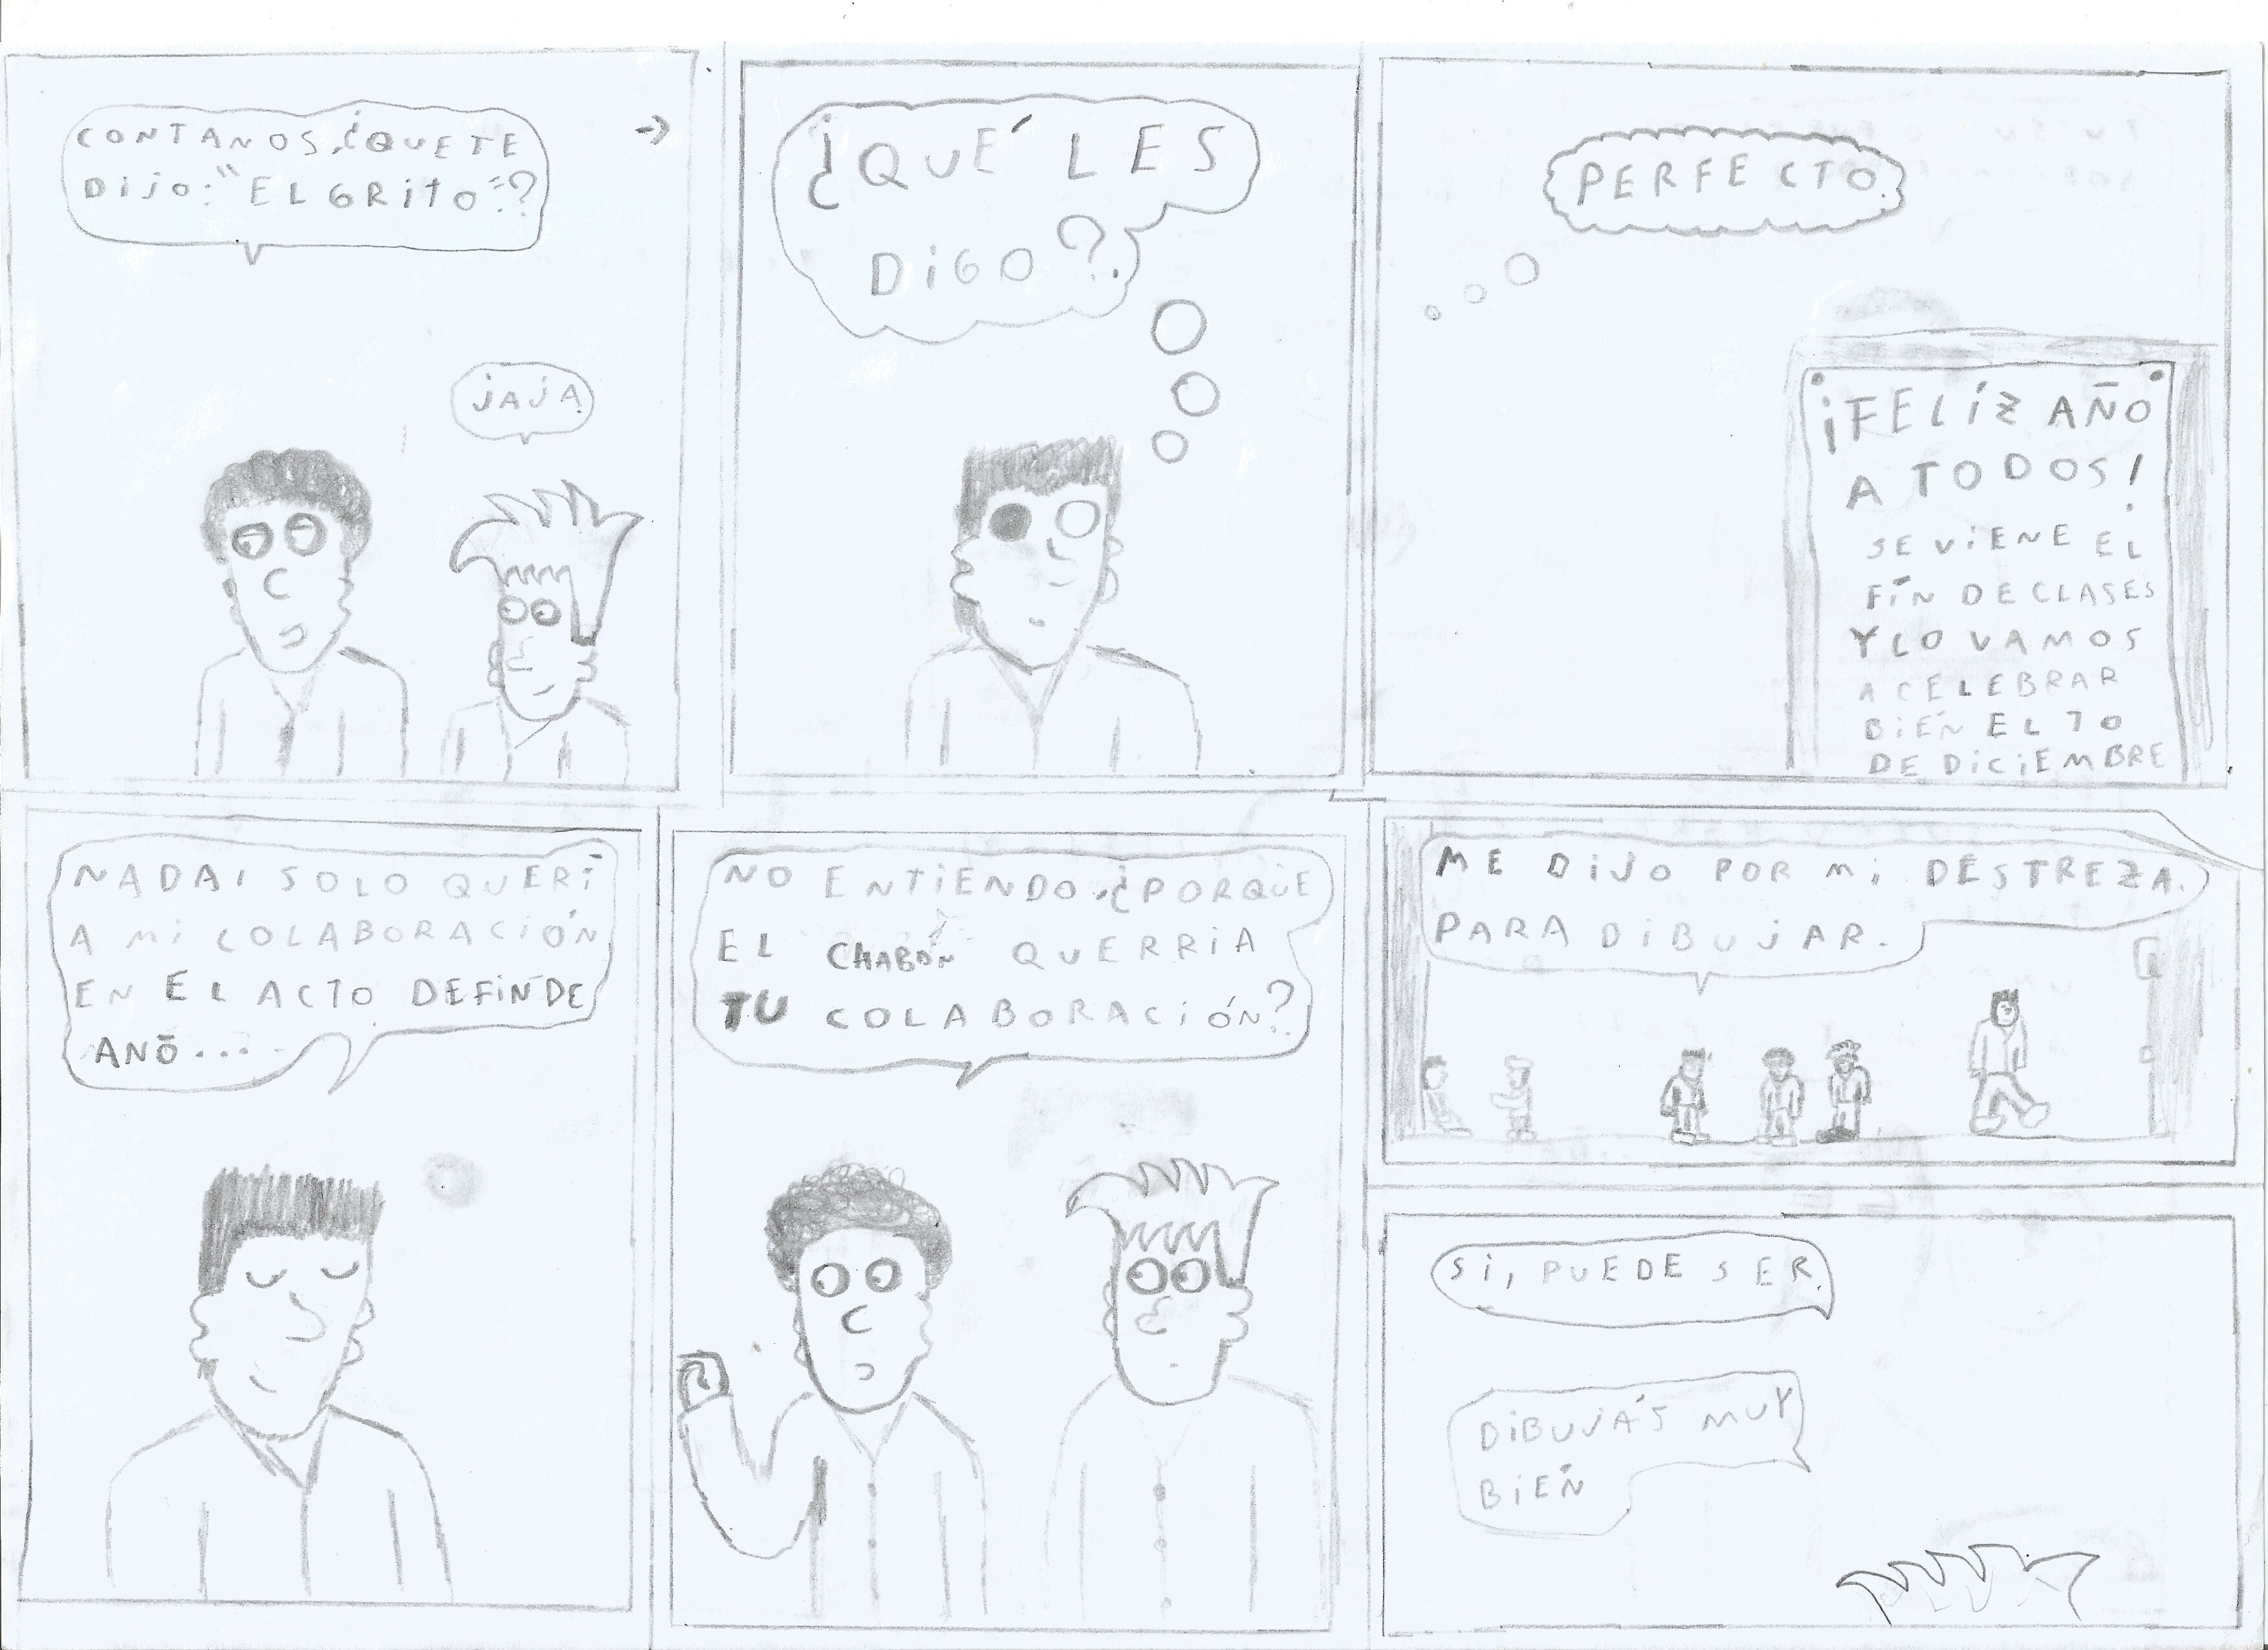 CONTANOS, ¿QUE TE
DIJO: "EL GRITO"?
JAJA
¿QUÉ LES
DIGO?
PERFECTO
¡FELÍZ AÑO
A TODOS!
SE VIENE EL
FÍN DE CLASES
Y LO VAMOS
A CELEBRAR
BIEN EL 10
DE DICIEMBRE
NADA, SOLO QUERÍ
A MI COLABORACIÓN
EN EL ACTO DE FIN DE
AÑO...
NO ENTIENDO, ¿PORQUE
EL CHABÓN QUERRIA
TU COLABORACIÓN?
ME DIJO POR MI DESTREZA
PARA DIBUJAR.
SI, PUEDE SER.
DIBUJÁS MUY
BIEN